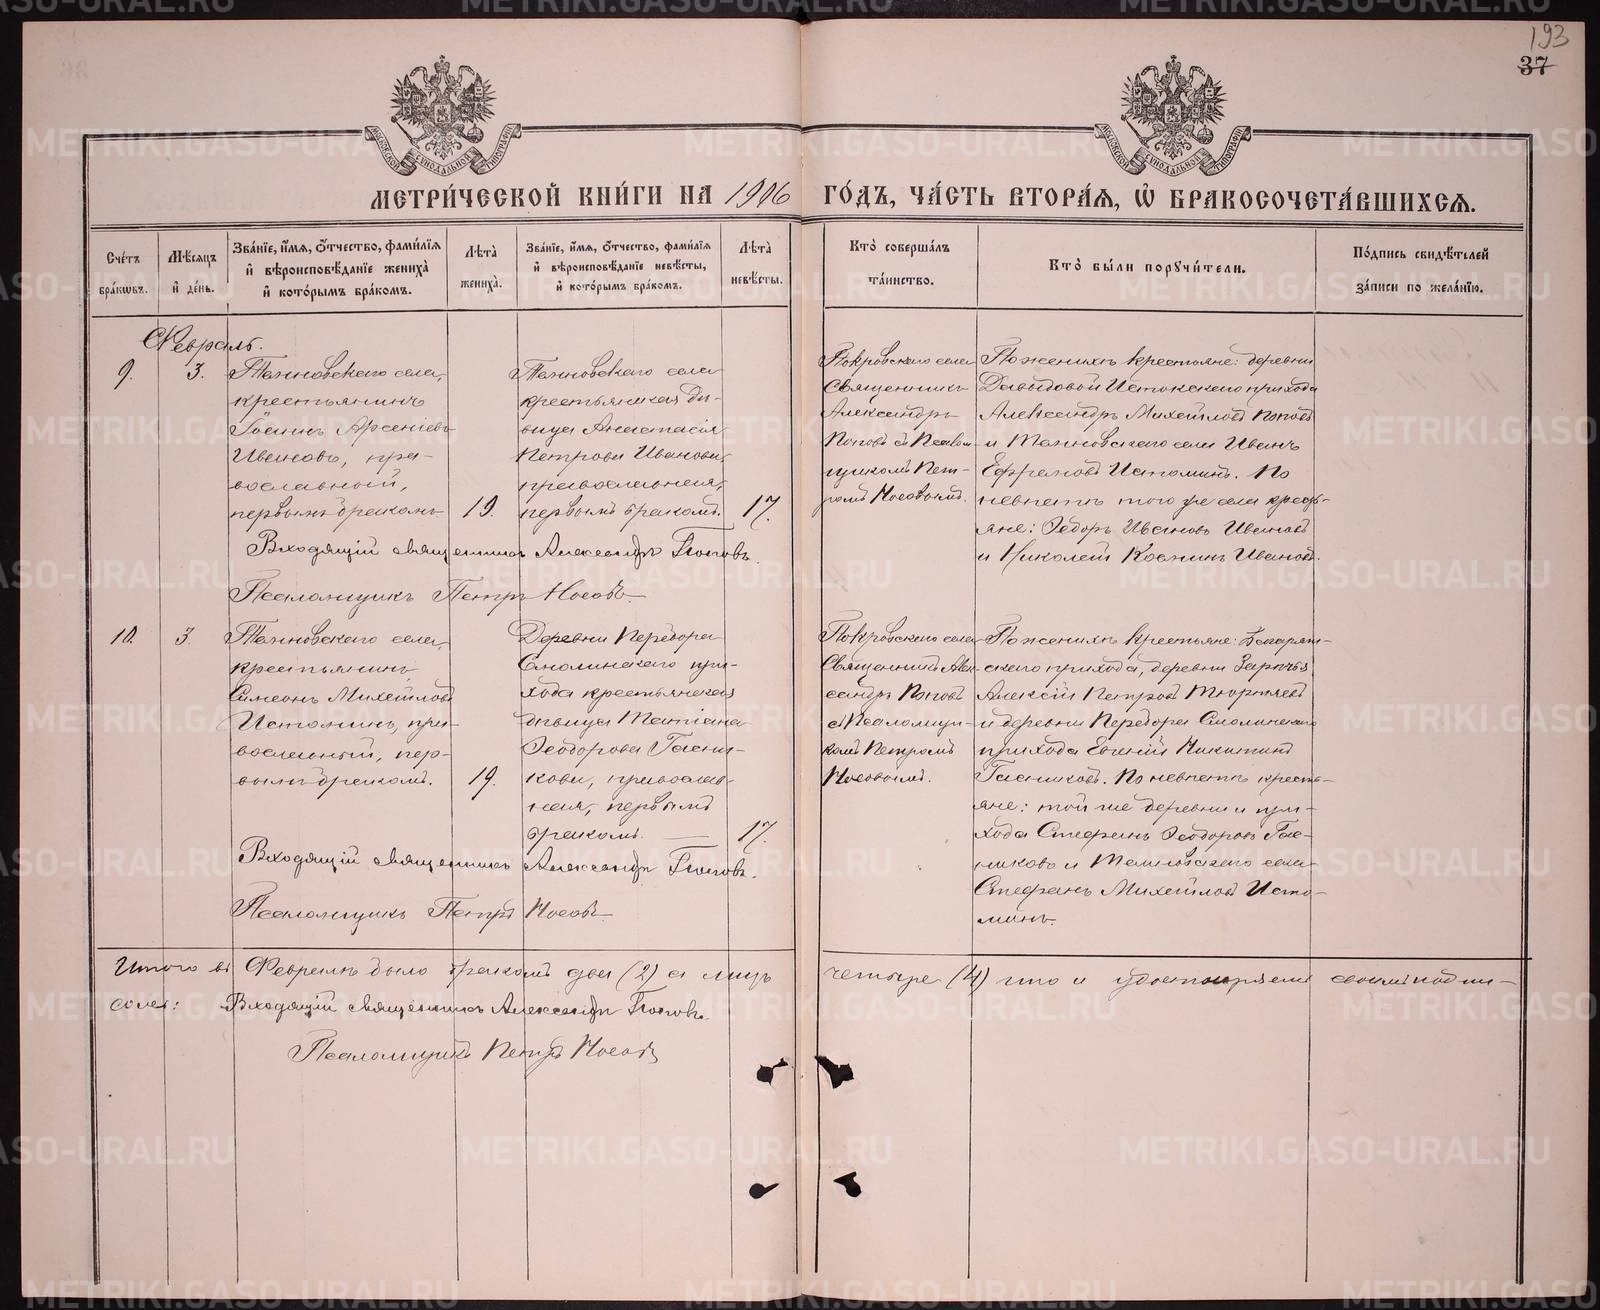 193
37
МОСКОВСКОЙ СѴНОДАЛЬНОЙ ТИПОГРАФІИ
МОСКОВСКОЙ СѴНОДАЛЬНОЙ ТИПОГРАФІИ
МЕТРИ́ЧЕСКОЙ КНИ́ГИ НА 1906 ГО́ДЪ, ЧА́СТЬ ВТОРА́Я, Ѡ БРАКОСОЧЕТА́ВШИХСЯ.
Сче́тъ бра́кѡвъ.
Мѣ́сяцъ и҆ де́нь.
Зва́нїе, и҆́мя, ѻ҆́тчество, фами́лїя
и҆ вѣроисповѣ́данїе жениха̀
и҆ кото́рымъ бра́комъ.
Лѣ́та̀ жениха̀.
Зва́нїе, и҆́мя, ѻ҆́тчество, фами́лїя
и҆ вѣроисповѣ́данїе невѣ́сты,
и҆ кото́рымъ бра́комъ.
Лѣ́та̀ невѣ́сты.
Кто̀ соверша́лъ
та́инство.
Кто̀ бы́ли порꙋчи́тели.
По́дпись свидѣ́телей
за́писи по жела́нїю.
Февраль.
9.
3.
села,
крестьянинъ
Іоаннъ Арсеніевъ
Ивановъ, пра-
вославный,
первымъ бракомъ
19.
села
крестьянская дѣ-
вица Анастасія
Петрова Иванова,
православная,
первымъ бракомъ.
17.
Покровскаго села
Священникъ
Александръ
Поповъ съ Псалом-
щикомъ Пет-
ромъ Носовымъ.
По женихѣ крестьяне: деревни
Давыдовой Истокскаго прихода
Александръ Михайловъ Поповъ
и села Иванъ
Ефремовъ Истоминъ. По
невѣстѣ того же села кресть-
яне: Ѳедоръ Ивановъ Ивановъ
и Николай Ивановъ.
Входящій священникъ Александръ Поповъ.
Псаломщикъ Петръ Носовъ
10.
3.
села,
крестьянинъ
Симеонъ Михайловъ
Истоминъ, пра-
вославный, пер-
вымъ бракомъ.
19.
Деревни Перебора
Смолинскаго при-
хода крестьянская
дѣвица Татіана
Ѳеодорова Гасни-
кова, православ-
ная, первымъ
бракомъ. —
17.
Покровскаго села
Священникъ Алек-
сандръ Поповъ
съ Псаломщи-
комъ Петромъ
Носовымъ.
По женихѣ крестьяне:
скаго прихода, деревни
Алексій Петровъ
и деревни Перебора Смолинскаго
прихода Евгеній Никитинъ
Гасниковъ. По невѣстѣ кресть-
яне: той же деревни и при-
хода Стефанъ Ѳеодоровъ Гас-
никовъ и села
Стефанъ Михайловъ Исто-
минъ.
Входящій священникъ Александръ Поповъ.
Псаломщикъ Петръ Носовъ
Итого въ Февралѣ было браковъ два (2) а лицъ четыре (4) что и удостовѣряемъ своимъ подпи-
сомъ: Входящій священникъ Александръ Поповъ.
Псаломщикъ Петръ Носовъ
METRIKI.GASO-URAL.RU